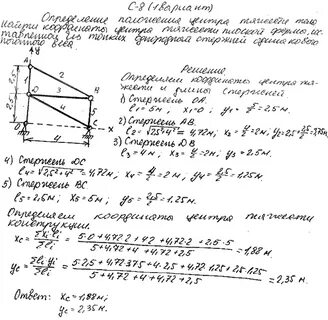 С-8 (1 вариант)
Определение положения центра тяжести тела
Найти координаты центра тяжести плоской фигуры, сос-
тавленной из тонких однородной стержней одинакового
погонного веса.
Решение
Определяем координаты центра тяж-
жести и длины стержней
1) Стержень OA.
l₁=5м, x₁=0; y₁=5/2=2.5м.
2) Стержень AB.
l₂=√2.5²+4²=4,72м; x₂=4/2=2м; y₂=2.5+2.5/2=3.75м
3) Стержень DB
l₃=4м; x₃=4/2=2м; y₃=2.5м.
4) Стержень DC
l₄=√2.5²+4²=4.72м; x₄=4/2=2м, y₄=2.5/2=1.25м.
5) Стержень BC.
l₅=2.5м; x₅=5м; y₅=2.5/2=1.25м.
Определяем координаты центра тяжести
конструкции.
xc=Σxili/Σli=5·0+4,72·2+4·2+4,72·2+2,5·5/5+4,72+4+4,72+2,5=1,88м.
yc=Σliyi/Σli=5·2,5+4,72·3.75+4·2,5+4,72·1.25+2.5·1.25/5+4,72+4+4,72+2,5=2,35м.
Ответ: xc=1,88м;
yc=2,35м.
y
A
2
2.5
D
3
B
1
4
5
2.5
O
C
x
4